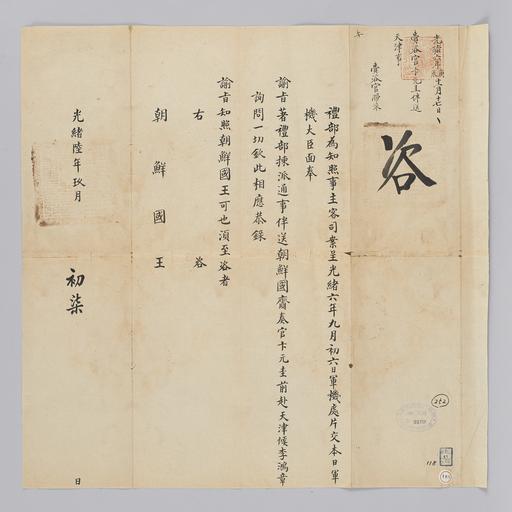 光緒六年庚辰十一月十七日
賫咨官卞元圭伴送
天津事
賫咨官賫來
咨
禮部為知照事主客司案呈光緒六年九月初六日軍機處片交本日軍
機大臣面奉
諭旨著禮部揀派通事伴送朝鮮國齎奏官卞元圭前赴天津候李鴻章
詢問一切欽此相應恭錄
諭旨知照朝鮮國王可也須至咨者
右 咨
朝鮮國王
光緒陸年玖月 初柒 日
252
118